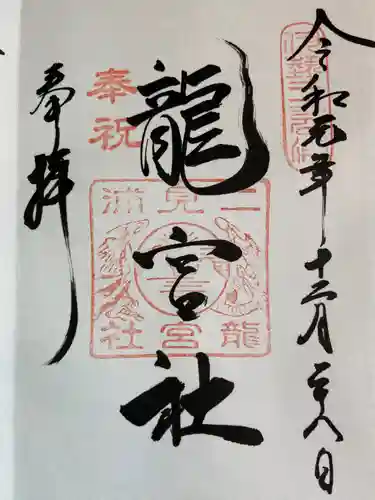 令和元年十二月二十八日
龍宮社
奉拝
奉祝
二見浦
龍宮社